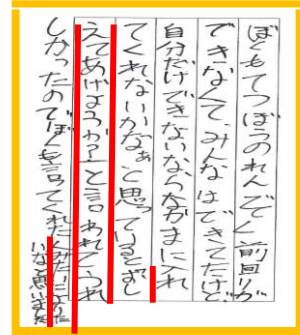 ぼくもてつぼうのれんぞく前回りが
できなくて、みんなはできてたけど
自分だけできないならなかまに入れ
てくれないかなぁと思ってけると「おし
えてあげようか?」と言われてうれ
しかったのでぼくも言ってくれた
いなと思いました